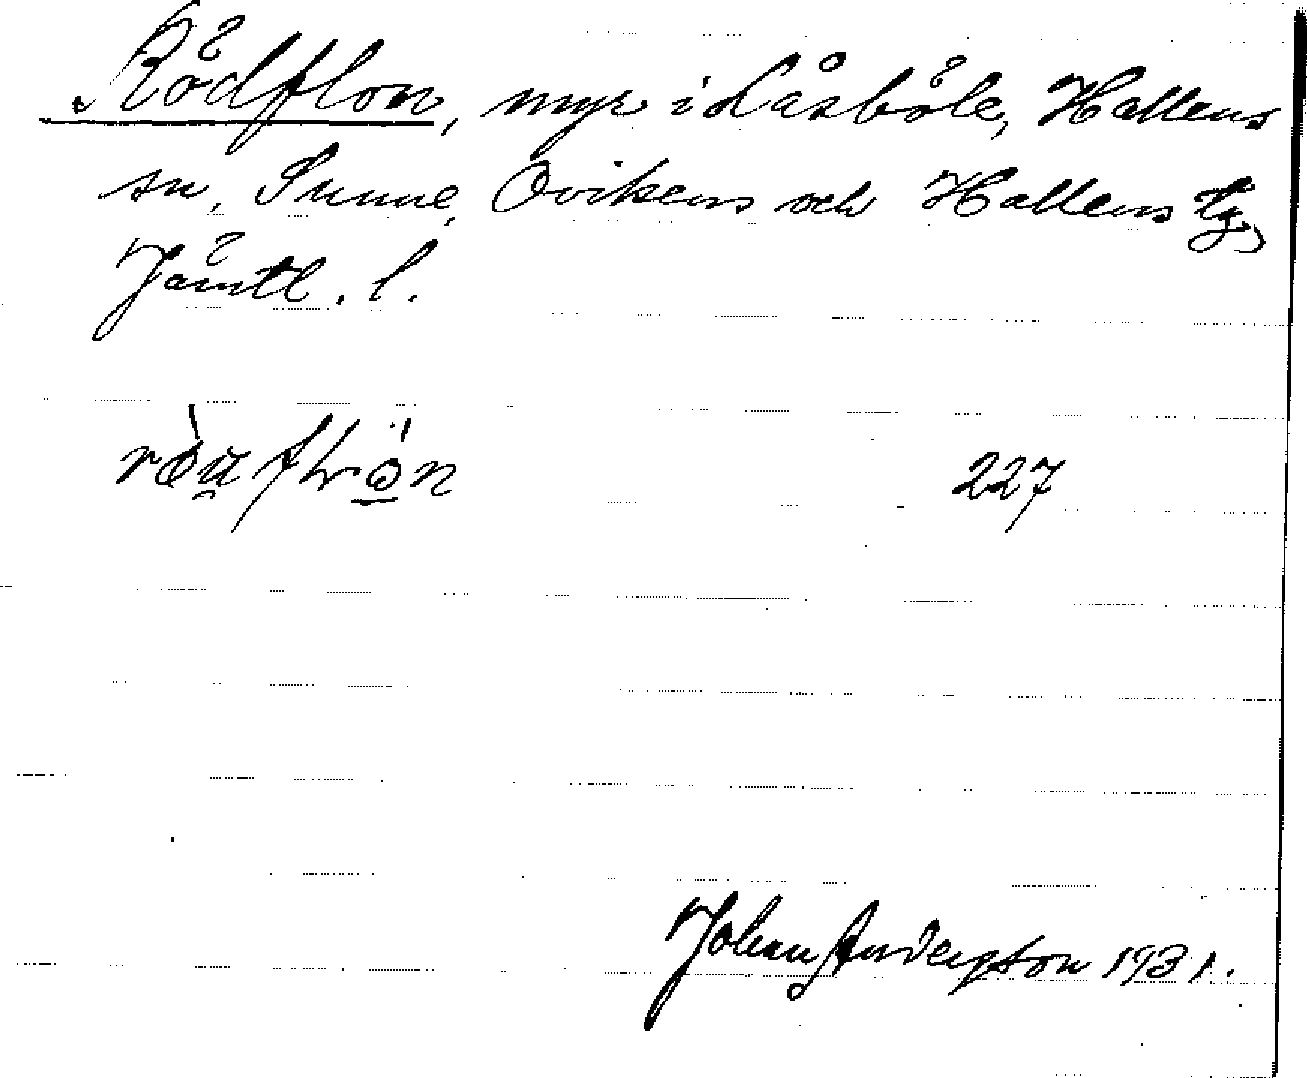 Rödflon, myr i Låsböle, Hallens
sn, Sunne, Ovikens och Hallens tg,
Jämtl. l.
227
Johan Anderzson 1931.